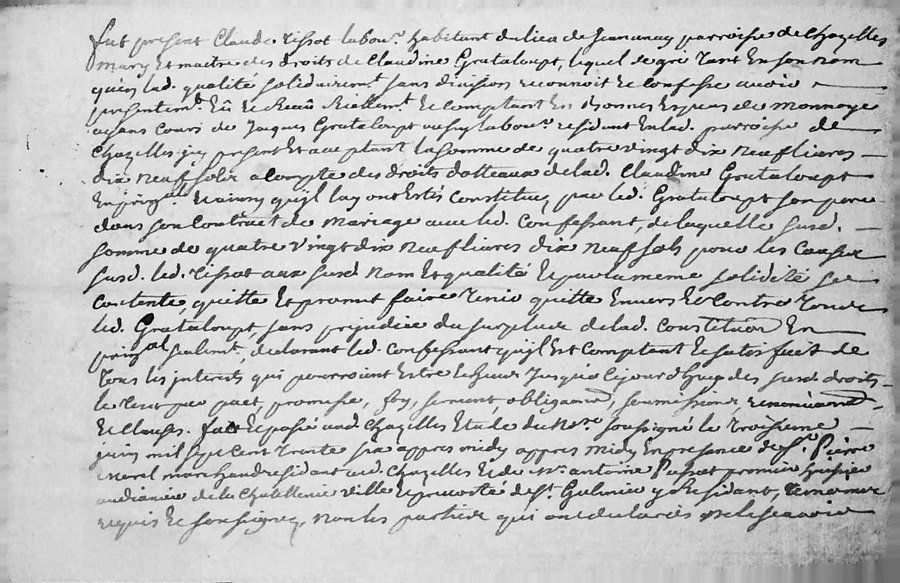 fut present Claude Tissot labour. habitant du lieu de Jeananay parroisse de Chazelles
Mary et maitre des droits de Claudine Grataloupt, lequel de gré tant en son nom
qu'en lad. qualité solidairemt. sans division reconnoit et confesse avoir
presentemt. Eû et Receû réellemt. et comptant en bonnes Espèces de monnoye
ayans cours de Jacques Grataloupt labour. residant en lad. parroisse de
Chazelles icy present et acceptant la somme de quatre vingt dix neuf livres
dix neuf sols a compte des droits dotteaux de lad. Claudine Grataloupt
En prinpal. ainsy qu'ijl luy ont estés constitués par led. Grataloupt son pere
dans son contract de mariage avec led. confessant, de laquelle susd.
somme de quatre vingt dix neuf livres dix neuf sols pour les causes
susd. led. Tissot aux susd. nom et qualité et par la meme solidité se
contente, quitte et promet faire tenir quitte envers et contre tous
led. Grataloupt sans prejudice du surplus de lad. constitution en
prinpal seulemt. declarant led. confessant qu'ijl est comptant et satisfait de
tous les interets qui pourroient estre et jusqu'a ce jourd'huy des susd. droits
le tout par pact, promesse, foy, serment, obligaons, soumissions, renonciaons
et clauses. fait et passé aud. Chazelles Etude du Nore soussigné le troisieme
juin mil sept cent trente six appres midy appres midy en presence de Sr. Pierre
marchand residant aud. Chazelles et de Me. antoine premier huissier
audiancier de la Chatellenie ville et prevosté de St. Galmier y residant, temoins
requis et soussignez, non les parties qui ont declarés ne le scavoir